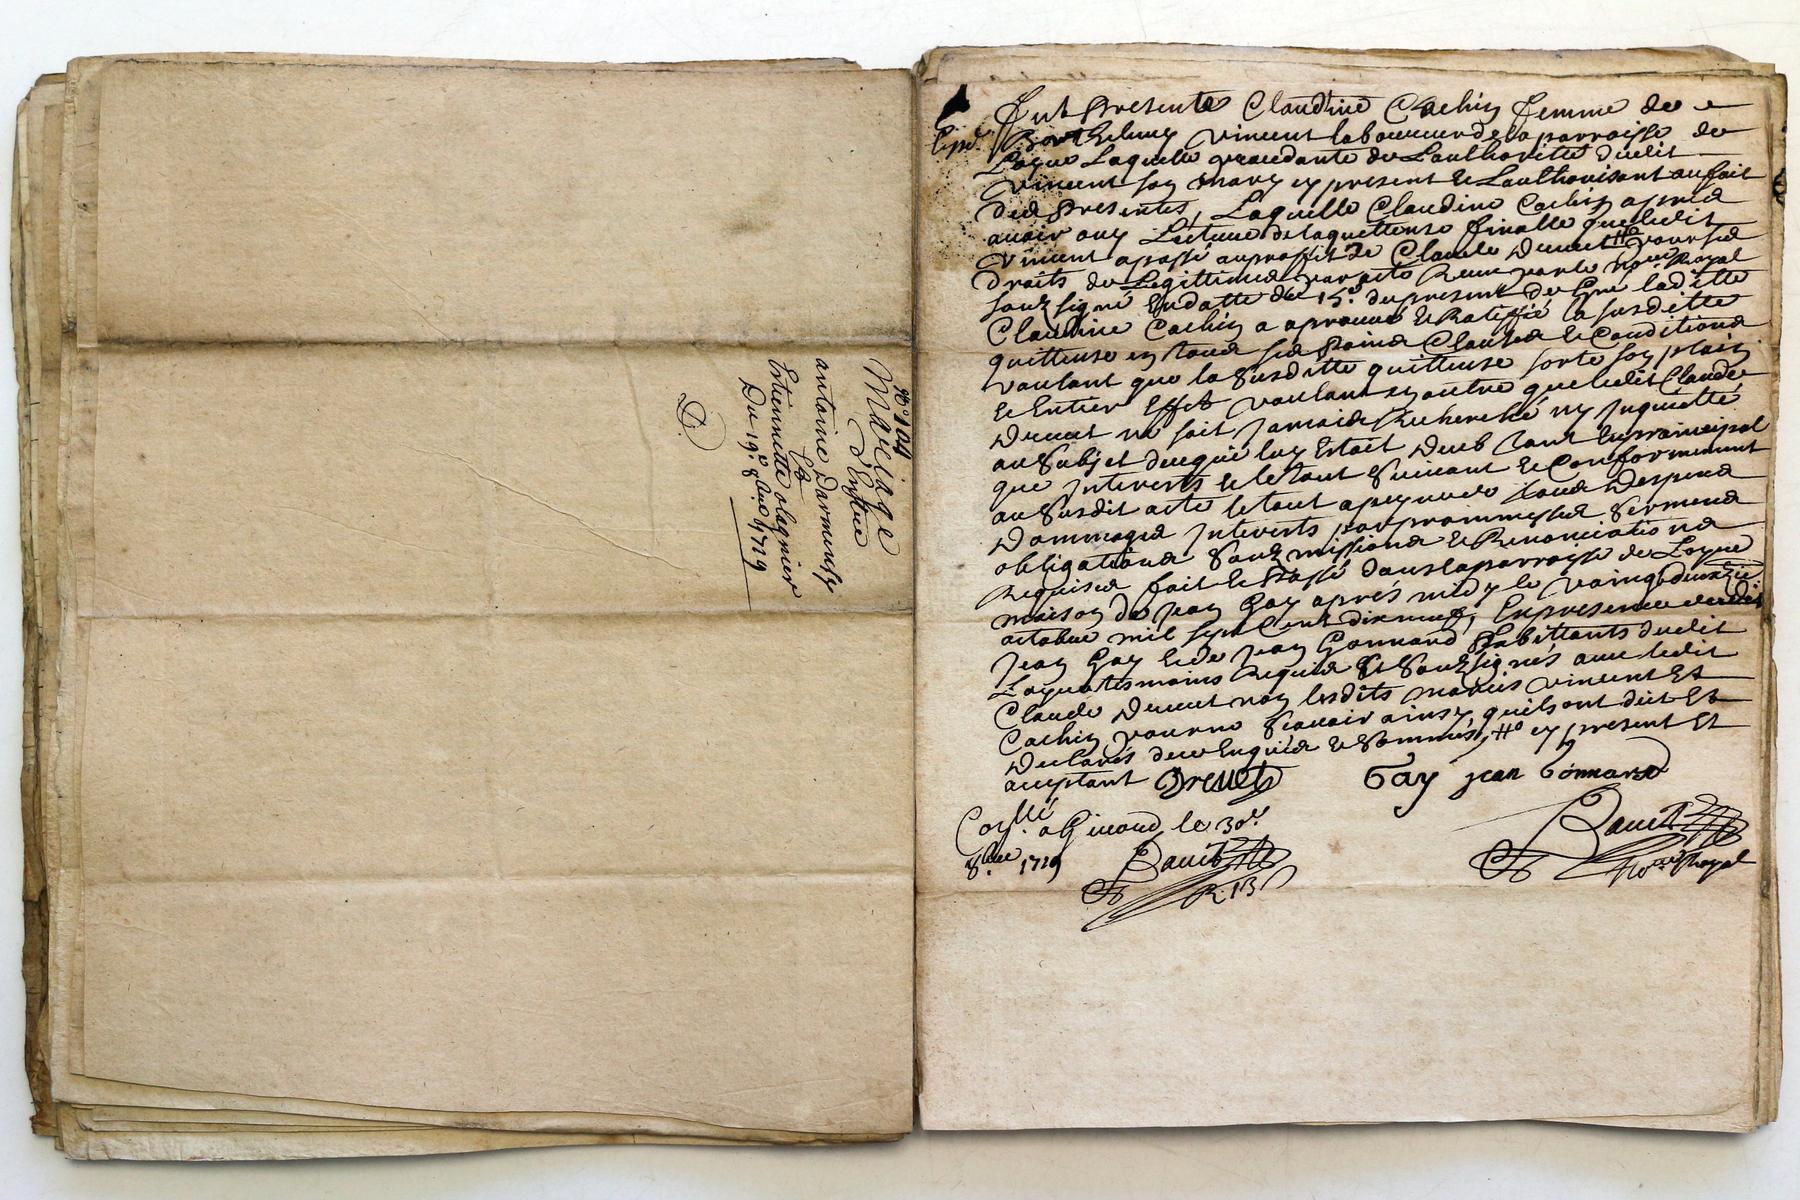 N.º 104
Mariage
D'Entre
antoine Darmensy
Et
Estiennette olagnier
Du 19.e 8.bre 1719
D.
Fut Presente Claudine Cachin femme de
Expd. Barthelemy Vincent laboureur de la parroisse de
Laquelle procedante de L'authorité dudit
Vincent son mary ey present et L'authorisant au fait
des Presentes, Laquelle Claudine Cachin apres
auoir ouy Lecture de la quittense finalle que ledit
Vincent a passé au proffit de Claude Dreuet #o pour ses
droits de Legittimes par acte Receu par le no.re Royal
souz signé En datte du 15.e du present de Gré laditte
Claudine Cachin a aprouué et Ratiffié la susditte
quittense en tous ses Points Clauses et Conditions
voulant que la Susditte quittense sorte son plain
et Entier Effet voulant en outre que ledit Claude
Dreuet ne soit Jamais Recherché ny Inquietté
au Subjet de ce qui luy Estoit Deub tant En principal
que Interets et le tout Suiuant et Conformement
au Susdit acte le tout a peyne de tous Despens
Dommages Interets par prommesses Sermens
obligations Souzmissions et Renonciations
Requises fait et Passé dans la parroisse de
maison de Jean Gay aprés midy le vaingtdeuxie
octobre mil sept Cent dixneuf, En presence dudit
Jean Gay et de Jean Gonnard Habittants dudit
tesmoins Requis et Souzsignés auec ledit
Claude Dreuet non lesdits mariés Vincent Et
Cachin pour ne Scauoir ainsy quils ont dit Et
Declarés de ce Enquis et Sommés, #o ey present Et
acceptant Dreuet Gay jean Gonnard
Coll.né a Giraud le 30.e
8.bre 1719 Rauit Rauit
R. 13 No.re Royal